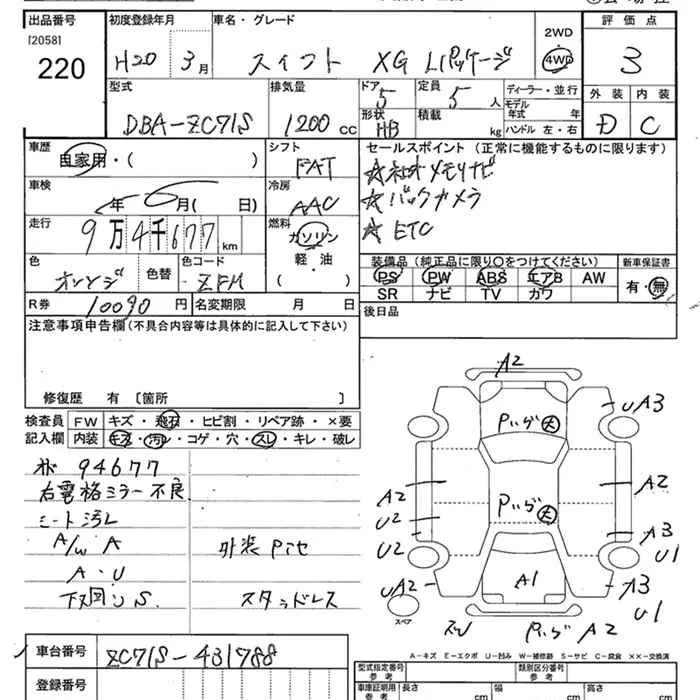 出品番号
[2058]
220
初度登録年月
H20 3月
車名・グレード
スイフト XG Lパッケージ
2WD
4WD
評価点
3
外装 内装
D C
型式
DBA-ZC71S
排気量
1200 cc
ドア
5
定員
5 人
形状
HB
積載
kg
ディーラー・並行
モデル年式 年
ハンドル 左・右
車歴
自家用・( )
シフト
FAT
車検
年 6月( 日)
冷房
AAC
走行
9万4千677 km
燃料
ガソリン
軽・油
( )
色
オレンジ
色替
色コード
ZFM
R券 10090 円
名変期限 月 日
セールスポイント(正常に機能するものに限ります)
☆社外メモリナビ
☆バックカメラ
☆ETC
装備品(純正品に限り○をつけてください)
PS PW ABS エアB AW
SR ナビ TV カワ
新車保証書
有・無
後日品
注意事項申告欄(不具合内容等は具体的に記入して下さい)
修復歴 有〔箇所 〕
検査員記入欄
FW キズ・飛石・ヒビ割・リペア跡・×要
内装 キズ・汚レ・コゲ・穴・スレ・キレ・破レ
94677
右電格ミラー不良
シート汚レ
A/W A
A・U
下回りS
外装
スタッドレス
A2
UA3
A2
A3
U1
A3
U1
A2
U2
U2
UA2
A1
A2
スペア
A-キズ E-エクボ U-凹み W-補修跡 S-サビ C-腐食 ××-交換済
車台番号 ZC71S-431788
登録番号
型式指定番号
参考
類別区分番号
参考
車庫証明用
参考
長さ cm
幅 cm
高さ cm